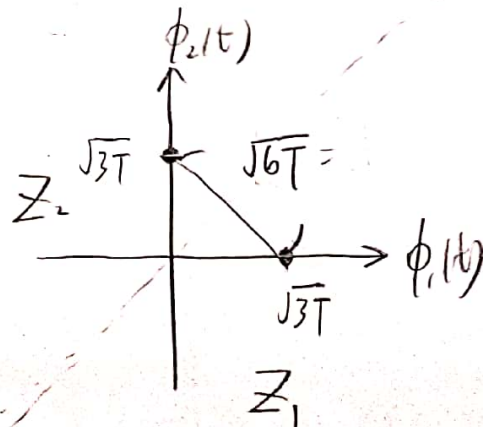 ϕ₂(t)
√3T
√6T =
Z₂
ϕ₁(t)
√3T
Z₁